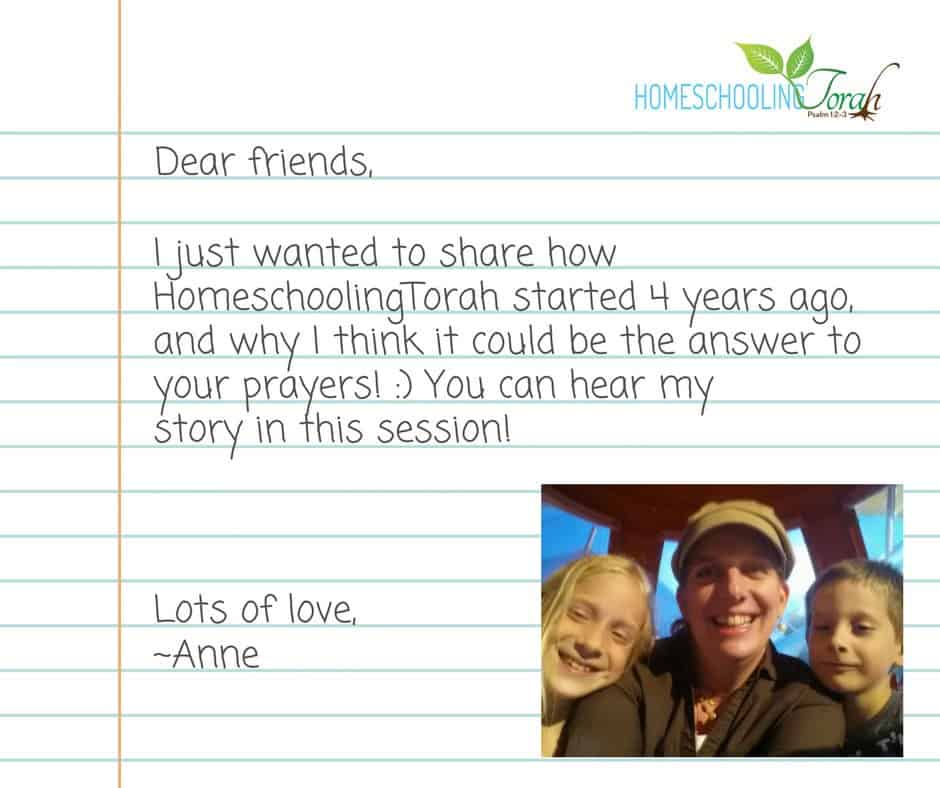 HOMESCHOOLING Torah
Psalm 1:2-3
Dear friends,
I just wanted to share how
HomeschoolingTorah started 4 years ago,
and why I think it could be the answer to
your prayers! :) You can hear my
story in this session!
Lots of love,
~Anne